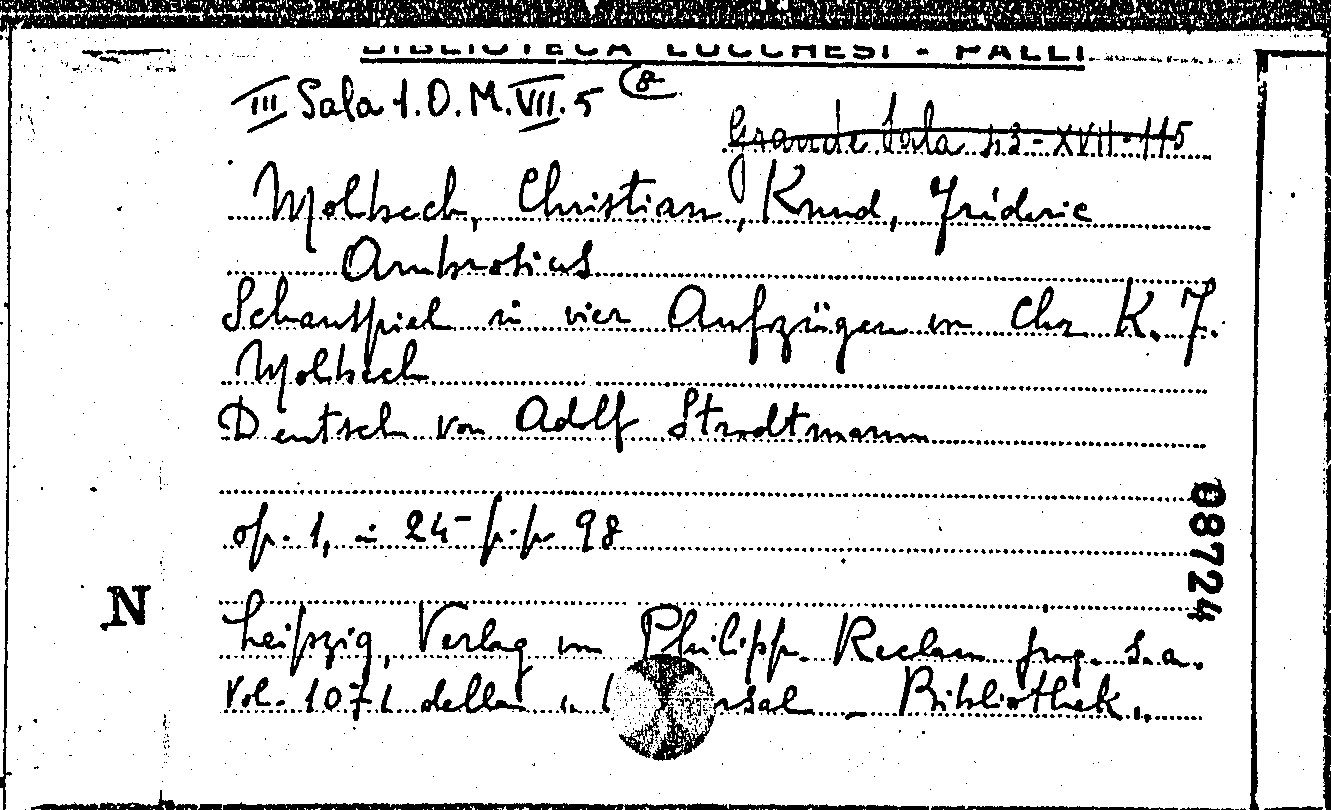 BIBLIOTECA LUCCHESI - PALLI
III Sala 1. O. M. VII. 5 (8
Grande Sala 43 - XVII - 115
Molbech, Christian, Knud, Fréderic
Ambrosius
Schauspiel in vier Aufzügen von Chr K. F.
Molbech
Deutsch von Adolf Strodtmann
op. 1, in 24- p.p. 98
N
08724
Leipzig, Verlag von Philipp. Reclam jung. s.a.
Vol. 1071 della rsal - Bibliothek.